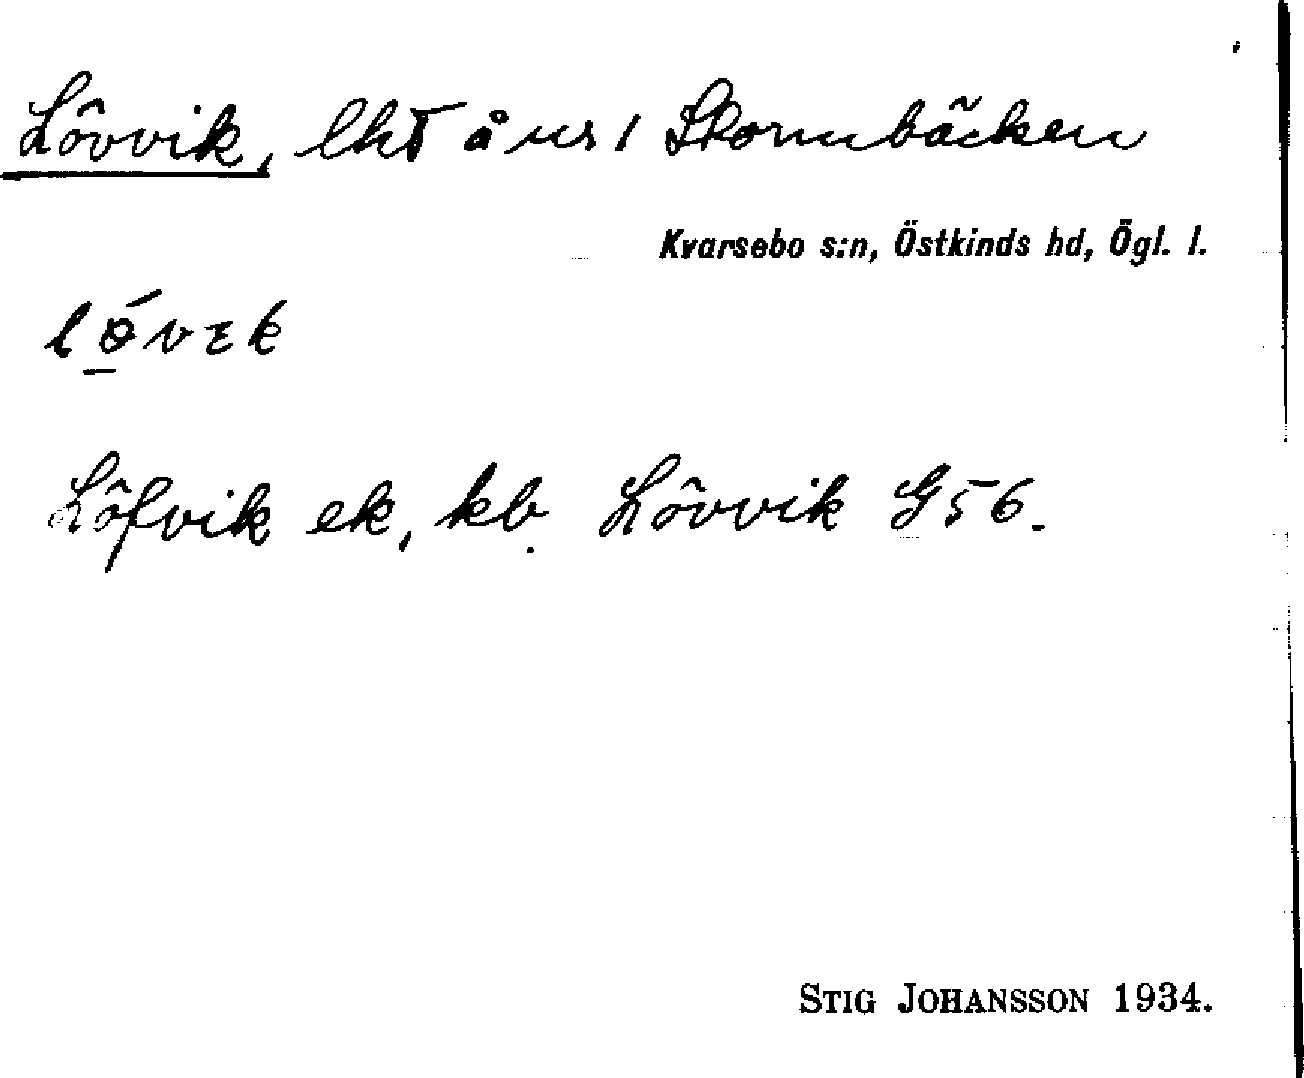 Lövvik, lht å nr 1 Skornbäcken
Kvarsebo s:n, Östkinds hd, Ögl. l.
lǿvɪk
Löfvik ek, kb. Lövvik G 56.
STIG JOHANSSON 1934.